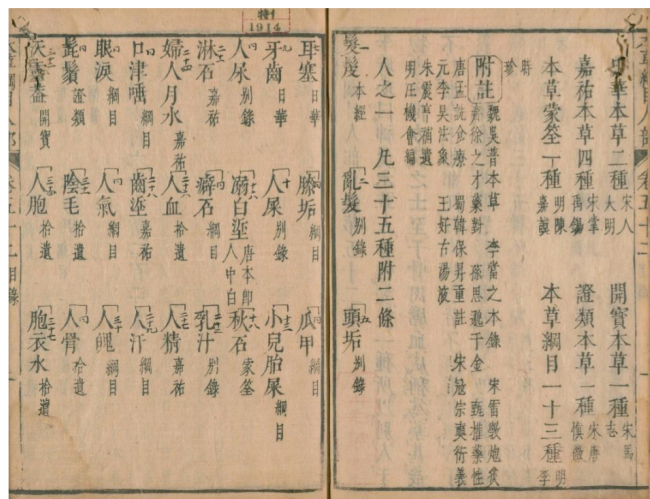 特1
1914
日華本草二種 宋人大明 開寶本草一種 宋馬志
嘉祐本草四種 宋掌禹錫 證類本草一種 宋唐慎微
本草蒙筌一種 明陳嘉謨 本草綱目一十三種 明李
時珍
附註 魏吳普本草 李當之本錄 宋雷斆炮炙
齊徐之才藥對 孫思邈千金 甄權藥性
唐孟詵食療 蜀韓保昇重註 宋寇宗奭衍義
元李杲法象 王好古湯液
朱震亨補遺
明汪機會編
人之一 凡三十五種附二條
髮髲 本經 亂髮 別錄 頭垢 別錄
耳塞 日華 膝垢 綱目 爪甲 綱目
牙齒 日華 人屎 別錄 小兒胎屎 綱目
人尿 別錄 溺白垽 唐本即人中白 秋石 蒙筌
淋石 嘉祐 癖石 綱目 乳汁 別錄
婦人月水 嘉祐 人血 拾遺 人精 嘉祐
口津唾 綱目 齒垽 嘉祐 人汗 綱目
眼淚 綱目 人氣 綱目 人魄 綱目
髭鬚 證類 陰毛 拾遺 人骨 拾遺
天靈蓋 開寶 人胞 拾遺 胞衣水 拾遺